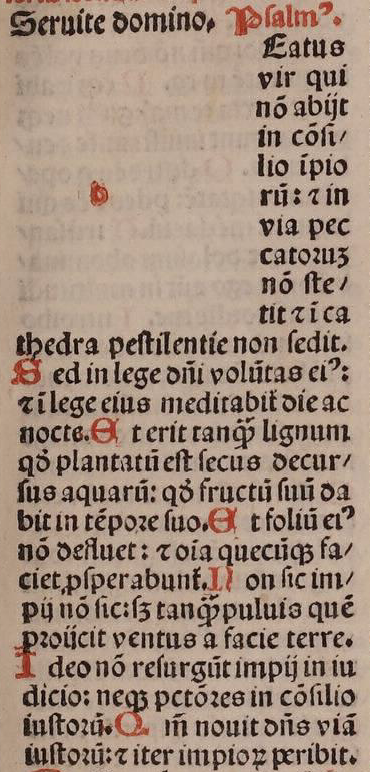 Seruite domino. Psalmꝰ.
Eatus
vir qui
nō abijt
in cōsi/
lio īpio
b rū: ⁊ in
via pec
catoꝛuꝫ
nō ste/
tit ⁊ ī ca
thedra pestilentie non sedit.
S ed in lege dn̄i volūtas eiꝰ:
⁊ ī lege eius meditabit̄ die ac
nocte. E t erit tanꝙ̄ lignum
qḋ plantatū est secus decur/
sus aquarū: qḋ fructū suū da
bit in tēpoꝛe suo. E t foliū eiꝰ
nō defluet: ⁊ oīa quecūqꝫ fa/
ciet ꝓsperabunt̄. N on sic im/
pij nō sic: sꝫ tanꝙ̄ puluis quē
proijcit ventus a facie terre.
I deo nō resurgūt impij in iu
dicio: neqꝫ pctōꝛes in cōsilio
iustoꝛū. Q m̄ nouit dn̄s viā
iustoꝛū: ⁊ iter impioꝝ peribit.